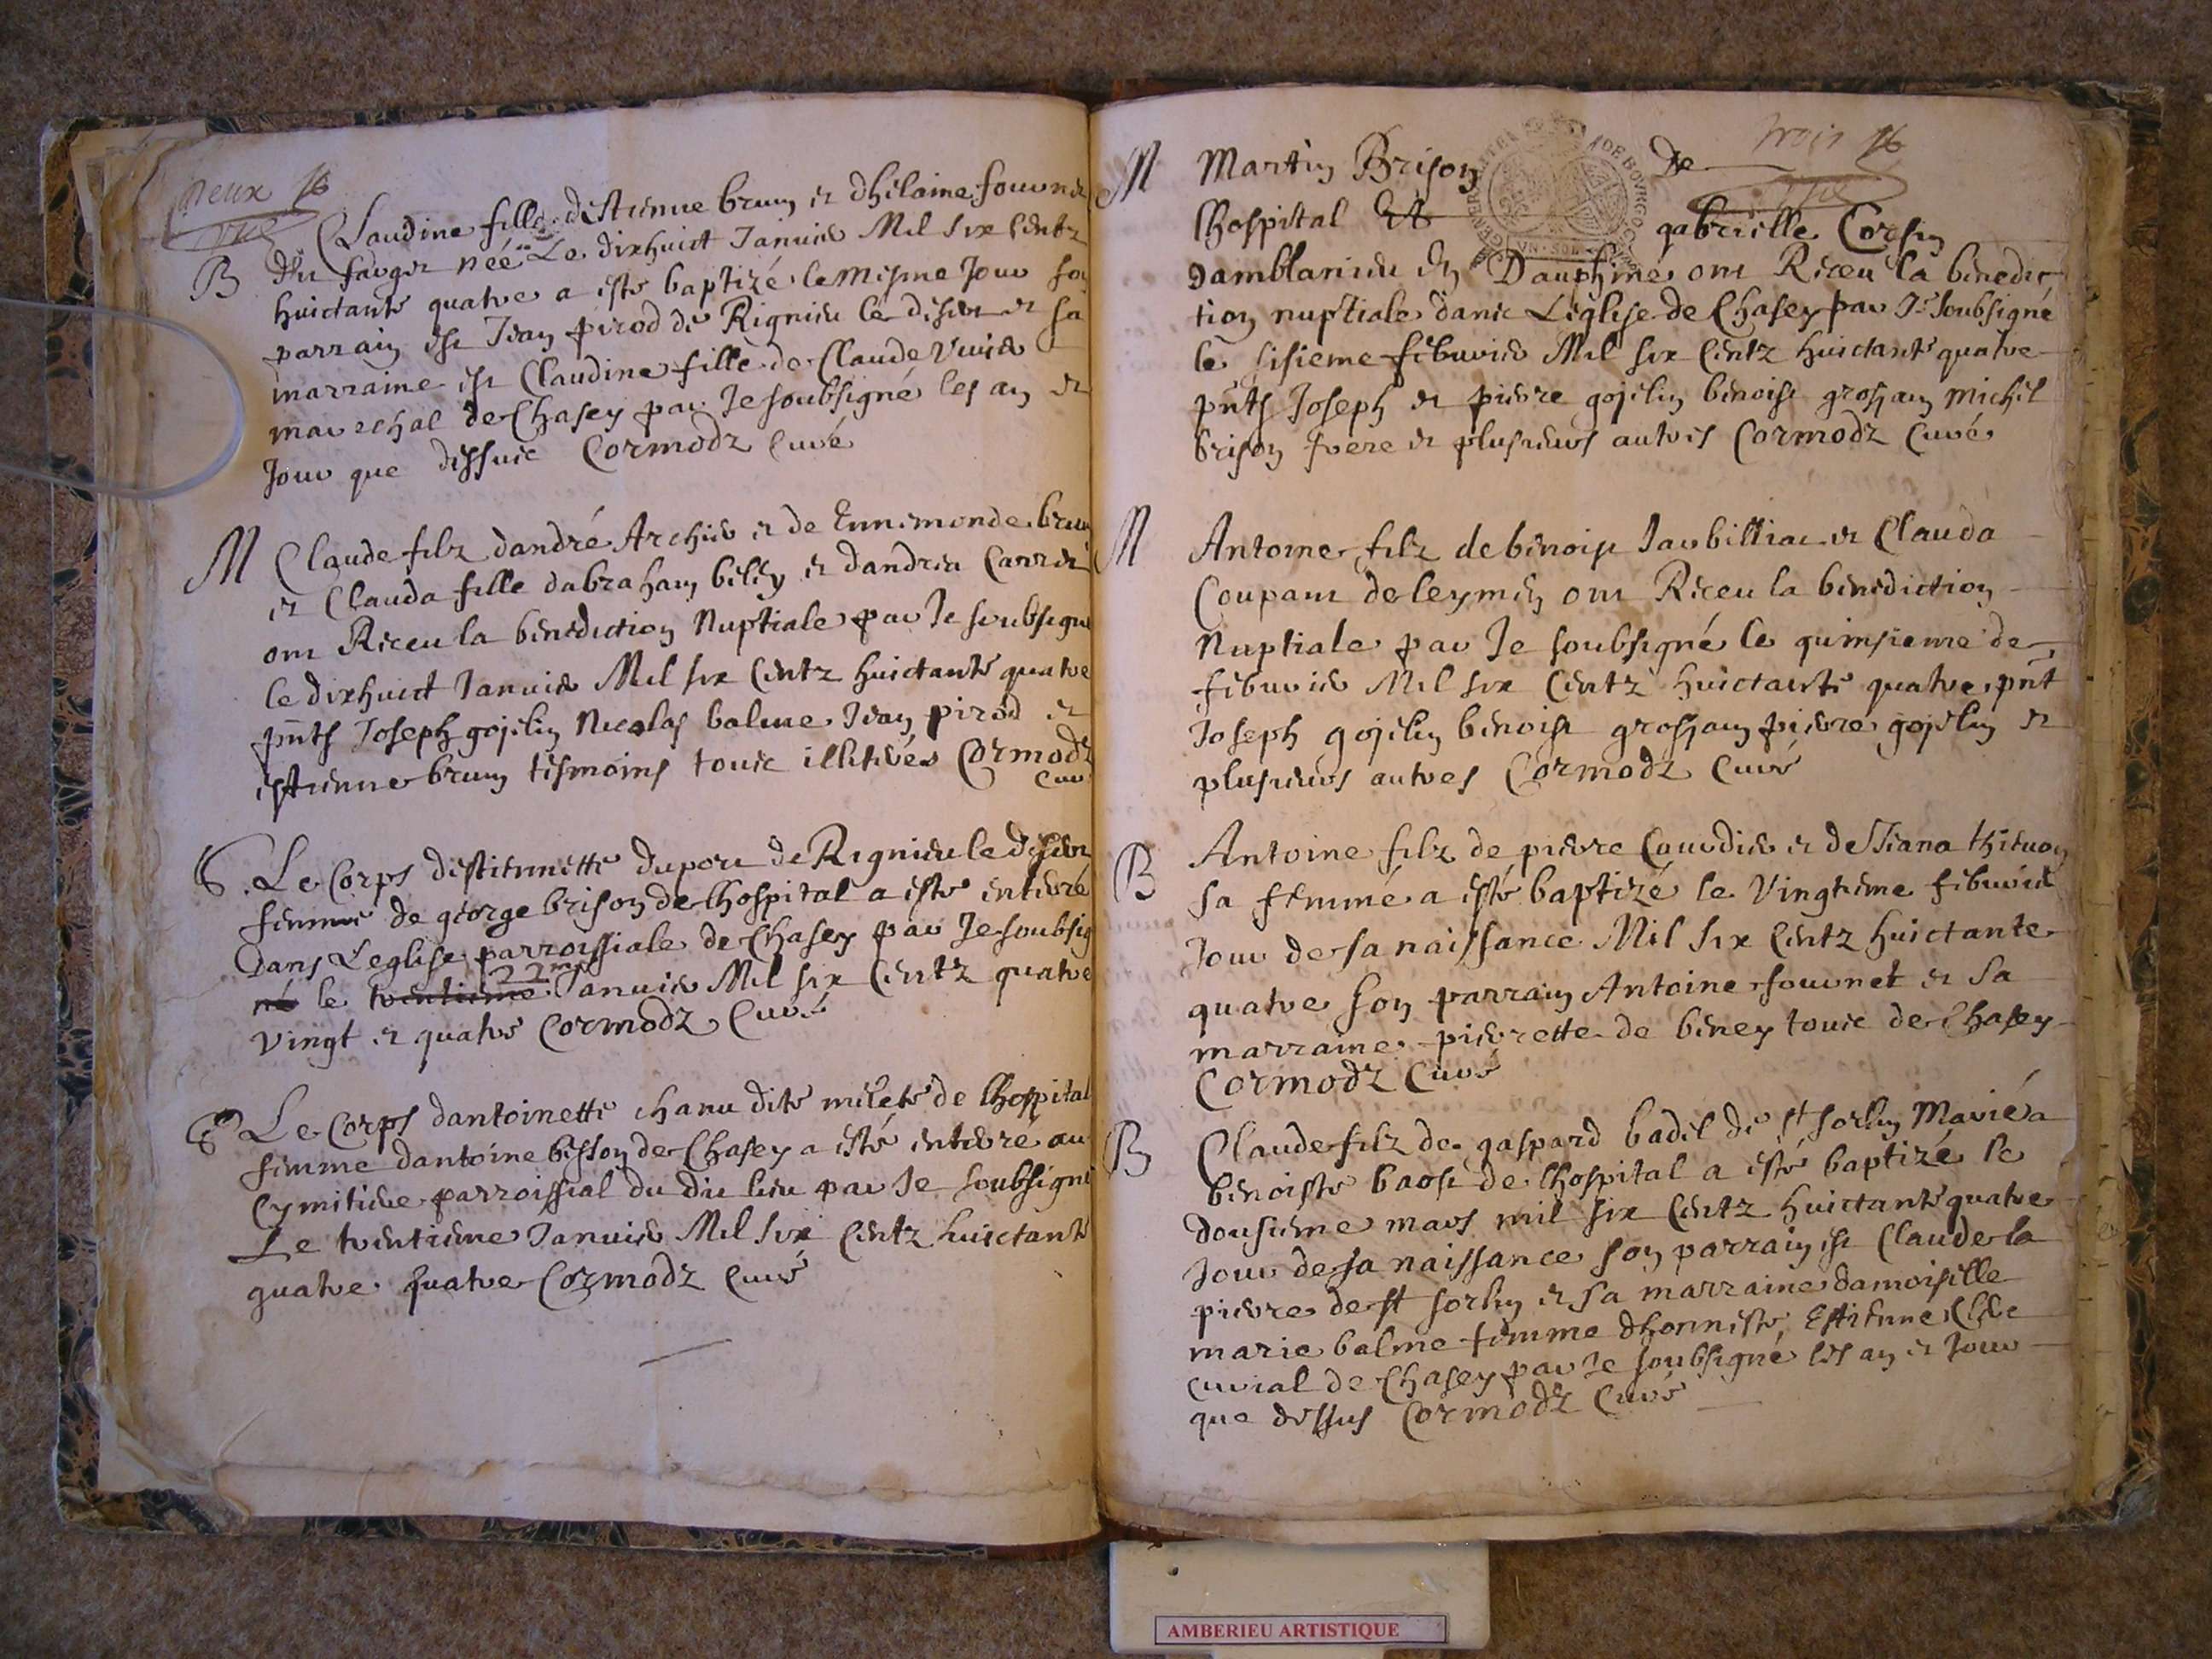 deux
B Claudine fille d'Estienne brun et dhelaine fournet
du fauger néé Le dixhuict Janvier Mil six Centz
huictante quatre a esté baptizé le Mesme Jour son
parrain est Jean pirod de Rignieu le desert et sa
marraine est Claudine fille de Claude
mareschal de Chasey par Je soubsigné les an et
Jour que dessuic Cormodz Curé
M Claude filz dandré Archier et de Ennemonde brun
et Clauda fille dabraham beley et dandrea Carrier
ont Receu la benediction Nuptiale par Je soubsigné
le dixhuict Janvier Mil six Centz huictante quatre
pnts Joseph gojelin Nicolas balme Jean pirod et
estienne brun tesmoins touic illiterés Cormodz
Curé
S Le Corps destiennette duport de Rignieu le desert
femme de george brison de lhospital a esté enterré
dans Leglise parroissiale de Chasey par Je soubsig
né le trentieme 22me Janvier Mil six Centz quatre
vingt et quatre Cormodz Curé
S Le Corps dantoinette chanu dite milete de lhospital
femme dantoine bisson de Chasey a esté enterré au
Cymitiere parroissial du dit lieu par Je soubsigné
Le trentieme Janvier Mil six Centz huictante
quatre quatre Cormodz Curé
trois
M Martin Brison De
lhospital Et gabrielle Corsin
damblanieu En Dauphiné ont Receu la benedic
tion nuptiale danic Leglise de Chasey par Je soubsigné
le sisieme febvrier Mil six Centz huictante quatre
pnts Joseph et pierre gojelin benoist grosjean michel
brison frere et plusieurs autres Cormodz Curé
M Antoine filz de benoist Jarbilliat et Clauda
Coupant de leymen ont Receu la benediction
Nuptiale par Je soubsigné le quinsieme de
febvrier Mil six Centz huictante quatre pnt
Joseph gojelin benoist grosjean pierre gojelin et
plusieurs autres Cormodz Curé
B Antoine filz de pierre Courdier et de Jeana
sa femme a esté baptizé le Vingtieme febvrier
Jour de sa naissance Mil six Centz huictante
quatre son parrain Antoine fournet et sa
marraine pierrette de beney touic de Chasey
Cormodz Curé
B Claude filz de gaspard badel de st sorlin Marié a
benoiste baost de lhospital a esté baptizé le
dousieme mars mil six Centz huictante quatre
Jour de sa naissance son parrain est Claude la
pierre de st sorlin et sa marraine damoiselle
marie balme femme dhonneste Estienne
curial de Chasey par Je soubsigné les an et Jour
que dessus Cormodz Curé
AMBERIEU ARTISTIQUE